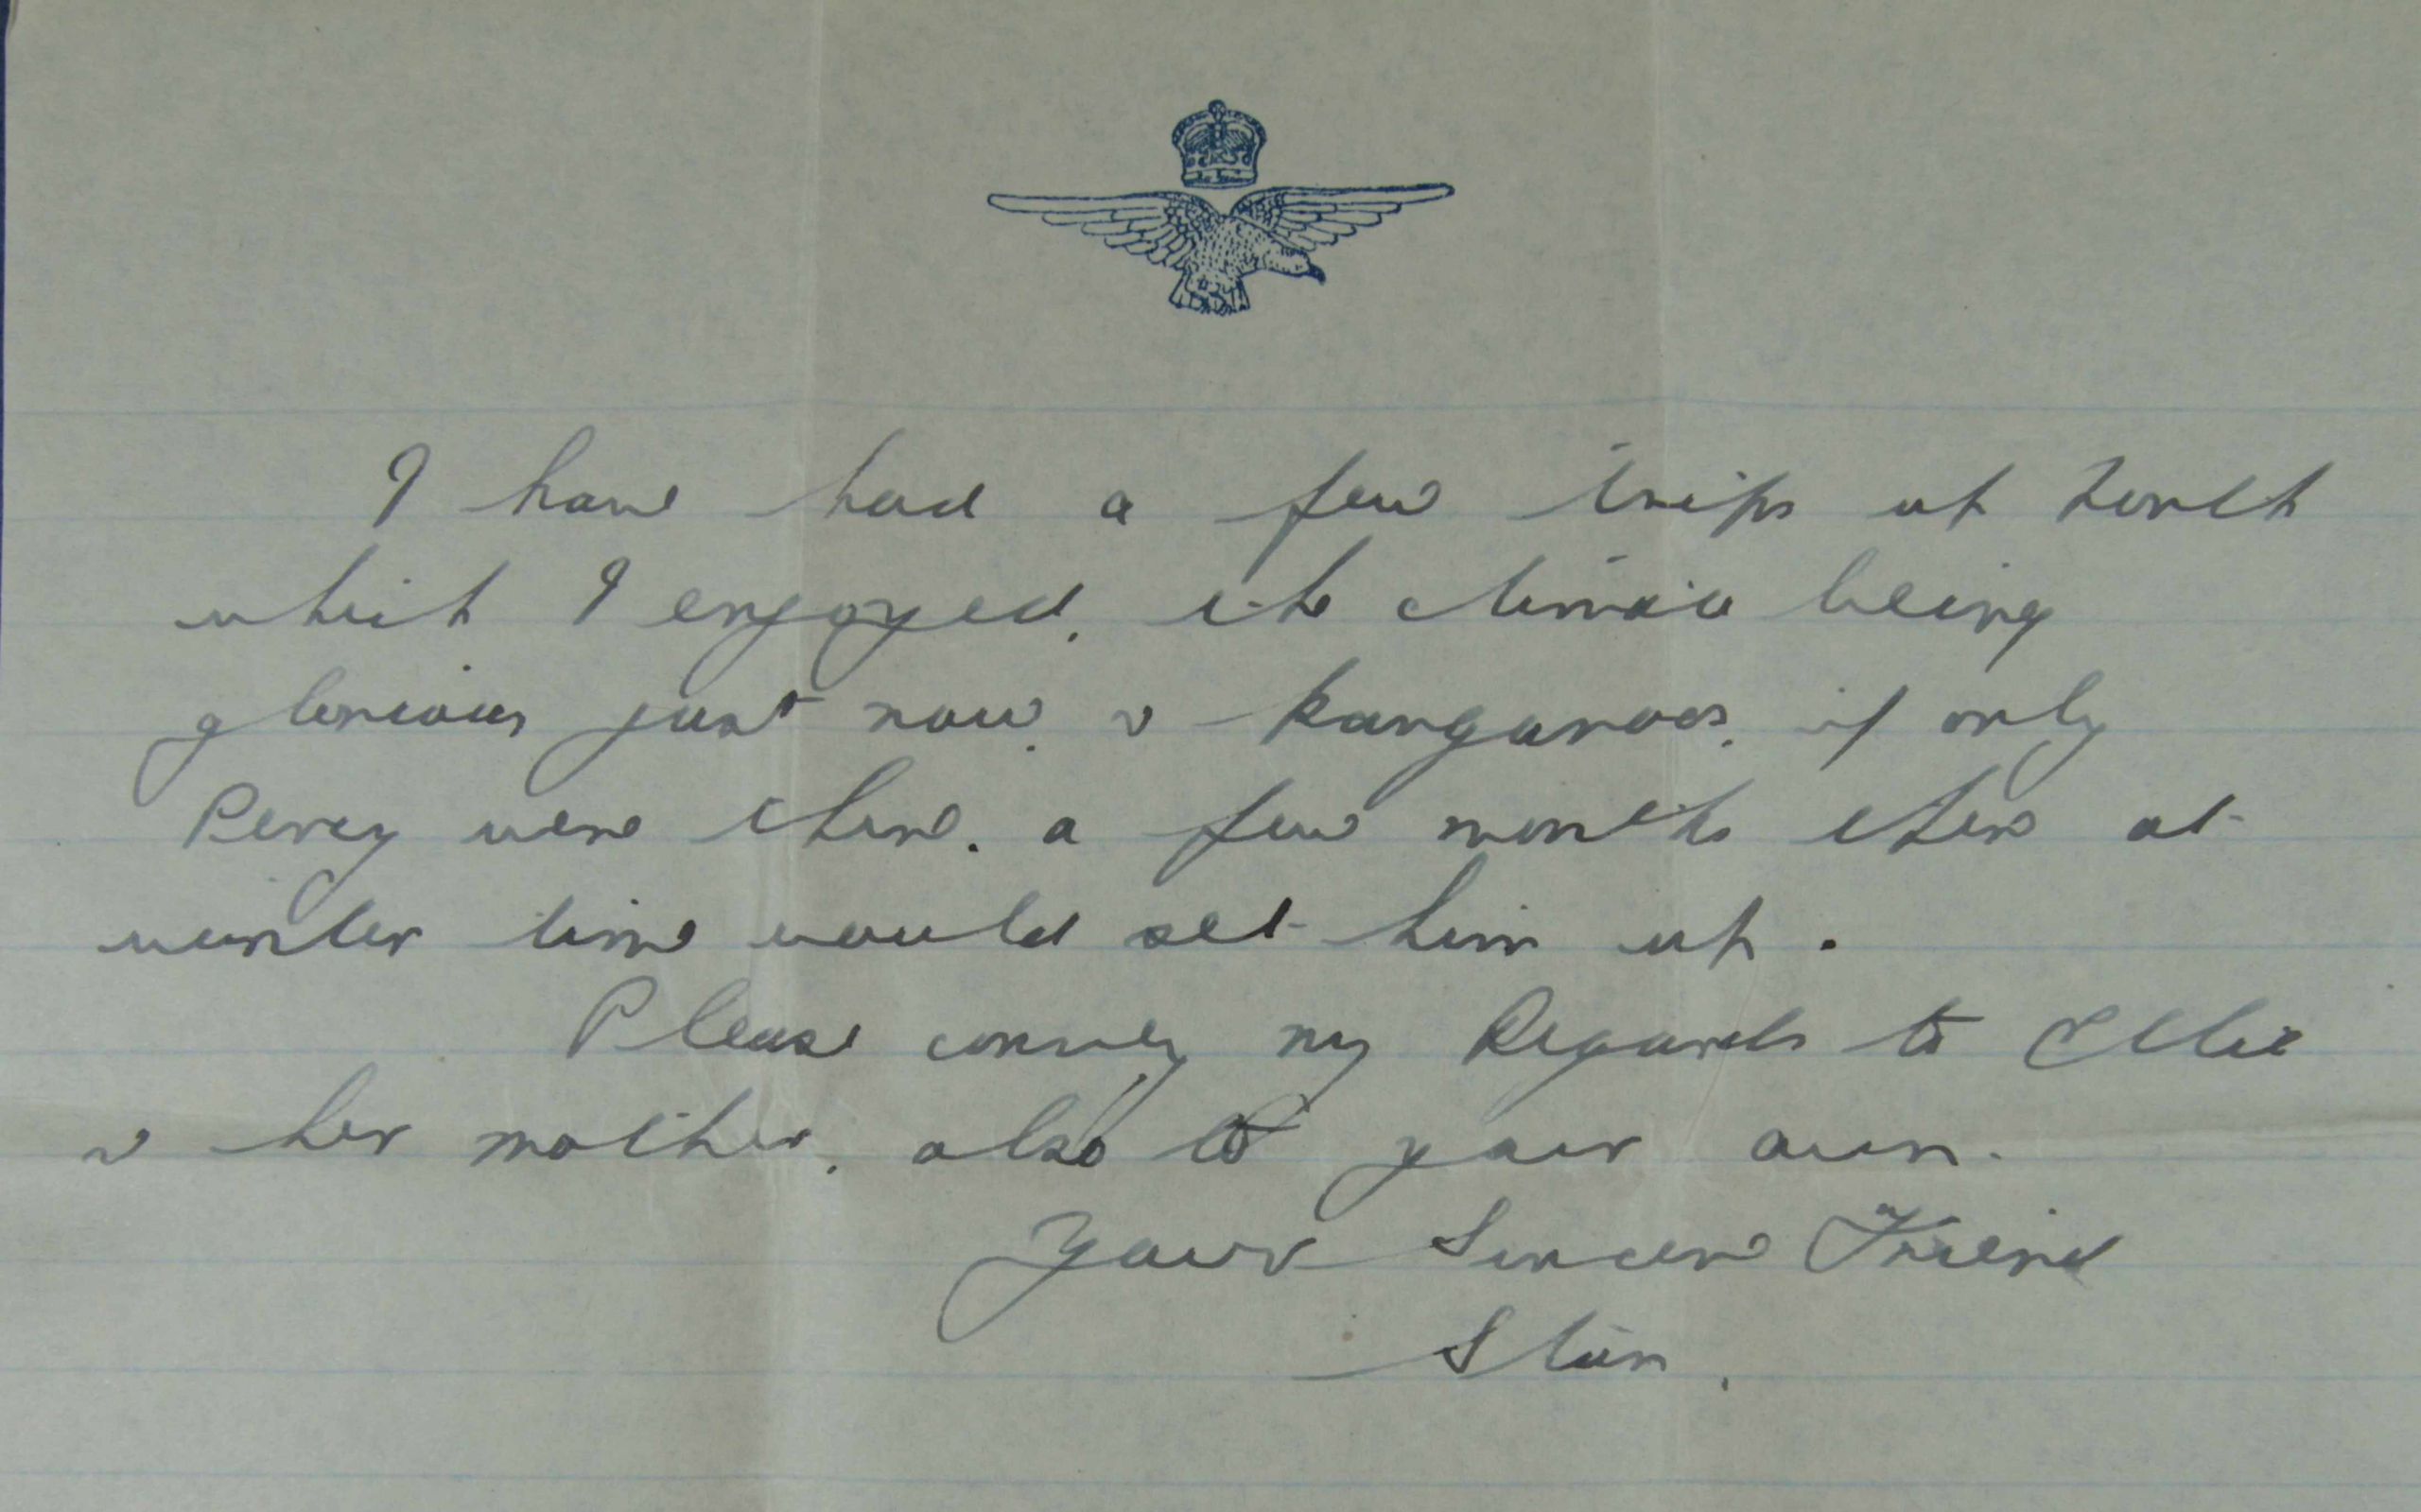 I have had a few trips up North
which I enjoyed. the climate being
glorious just now. & Kangaroos. if only
Percy were there. a few months there at
winter time would set him up.
Please convey my Regards to Ellie
& her mother. also to your own.
Your Sincere Friend
Stan.